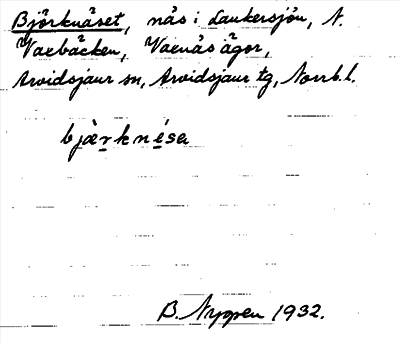 Björknäset, näs i Laukersjön, N.
Varbäcken, Varnäs ägor,
Arvidsjaur sn, Arvidsjaur tg, Norrb. l.
bjær̲knése̲a
B. Nyppen 1932.